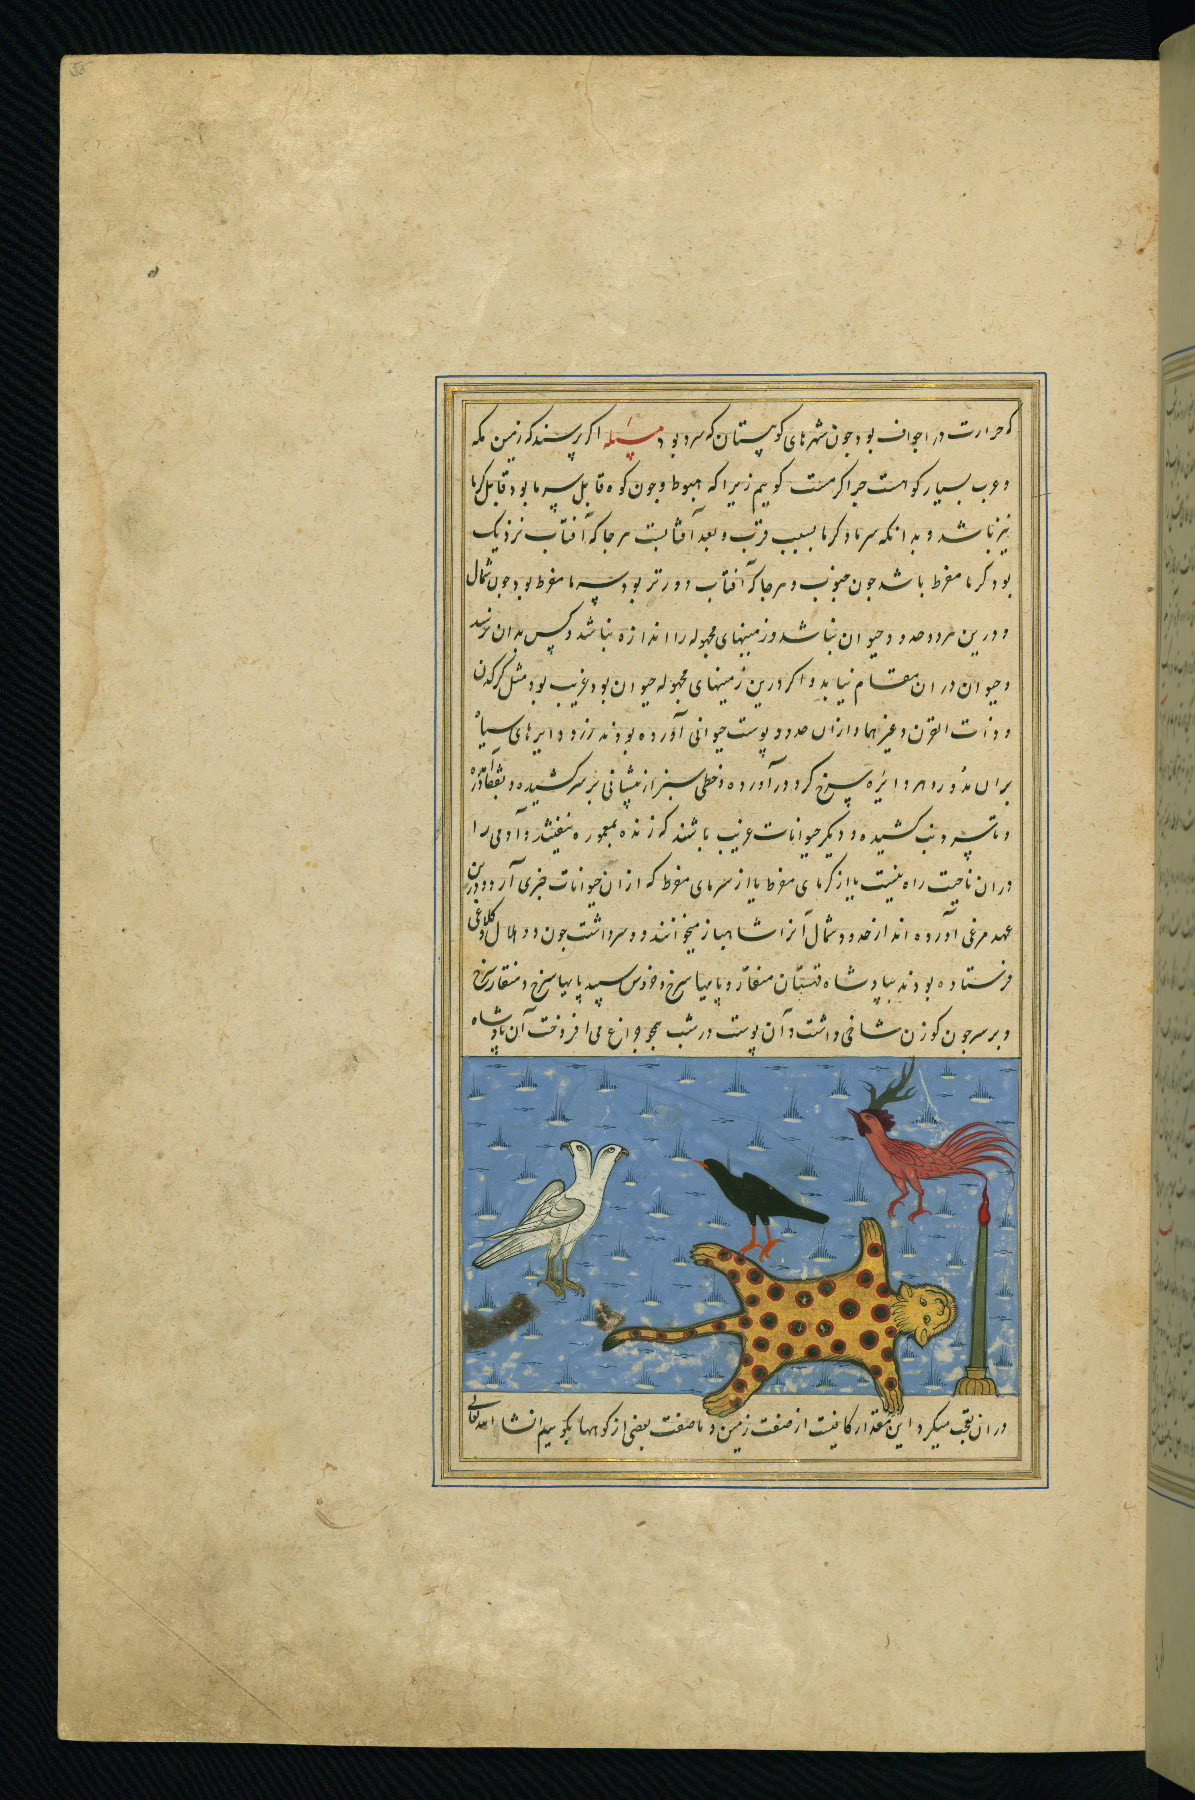 که حرارت در اجواف بود جون شهرهای کوهستان که سرد بود مسئله اکر پرسند که زمین مکه
و عرب بسیار کوهست جرا کرمست کوییم زیرا که هبوط وجون کوه قابل سرما بود قابل کرما
نیز باشد و بدانکه سرما و کرما بسبب قرب و بعد آفتابست هرجا که آفتاب نزدیک
بود کرما مفرط باشد جون جنوب و هرجا که آفتاب دورتر بود سرما مفرط بود جون شمال
و درین هر دو حدود حیوان نباشد و زمینهای مجهوله را اندازه نباشد و کس بدان نرسد
و حیوان در ان مقام نیابد و اکر درین زمینهای مجهوله حیوان بود غریب بود مثل کرکدن
و ذات القرن و غیرهما و ازان حدود پوست حیوانی آورده بودند زرد و دایرهای سیاه
بران مدور و هر دایره سرخ کرد در آورده و خطی سبز از پیشانی بر سر کشیده و بقفا در آمده
و تا سر دنب کشیده و دیکر حیوانات غریب باشند که زنده بمعموره نیفتد و آدمی را
در ان ناحیت راه نیست یا از کرمای مفرط یا از سرمای مفرط که از ان حیوانات خبری آرد و درین
عهد مرغی آورده اند از حدود شمال آنرا شاهباز میخوانند و دو سر داشت جون دو هلال و کلاغی
فرستاده بودند بپادشاه قهستان منقار و پایها سرخ و خروس سپید پایها سرخ و منقار سرخ
و بر سر جون کوزن شاخی داشت و آن پوست در شب همجو جراغ می افروخت آن پادشاه
در ان تعجب میکرد این مقدار کافیست از صفت زمین و ما صفت بعضی از کوهها بکوییم انشا الله تعالی